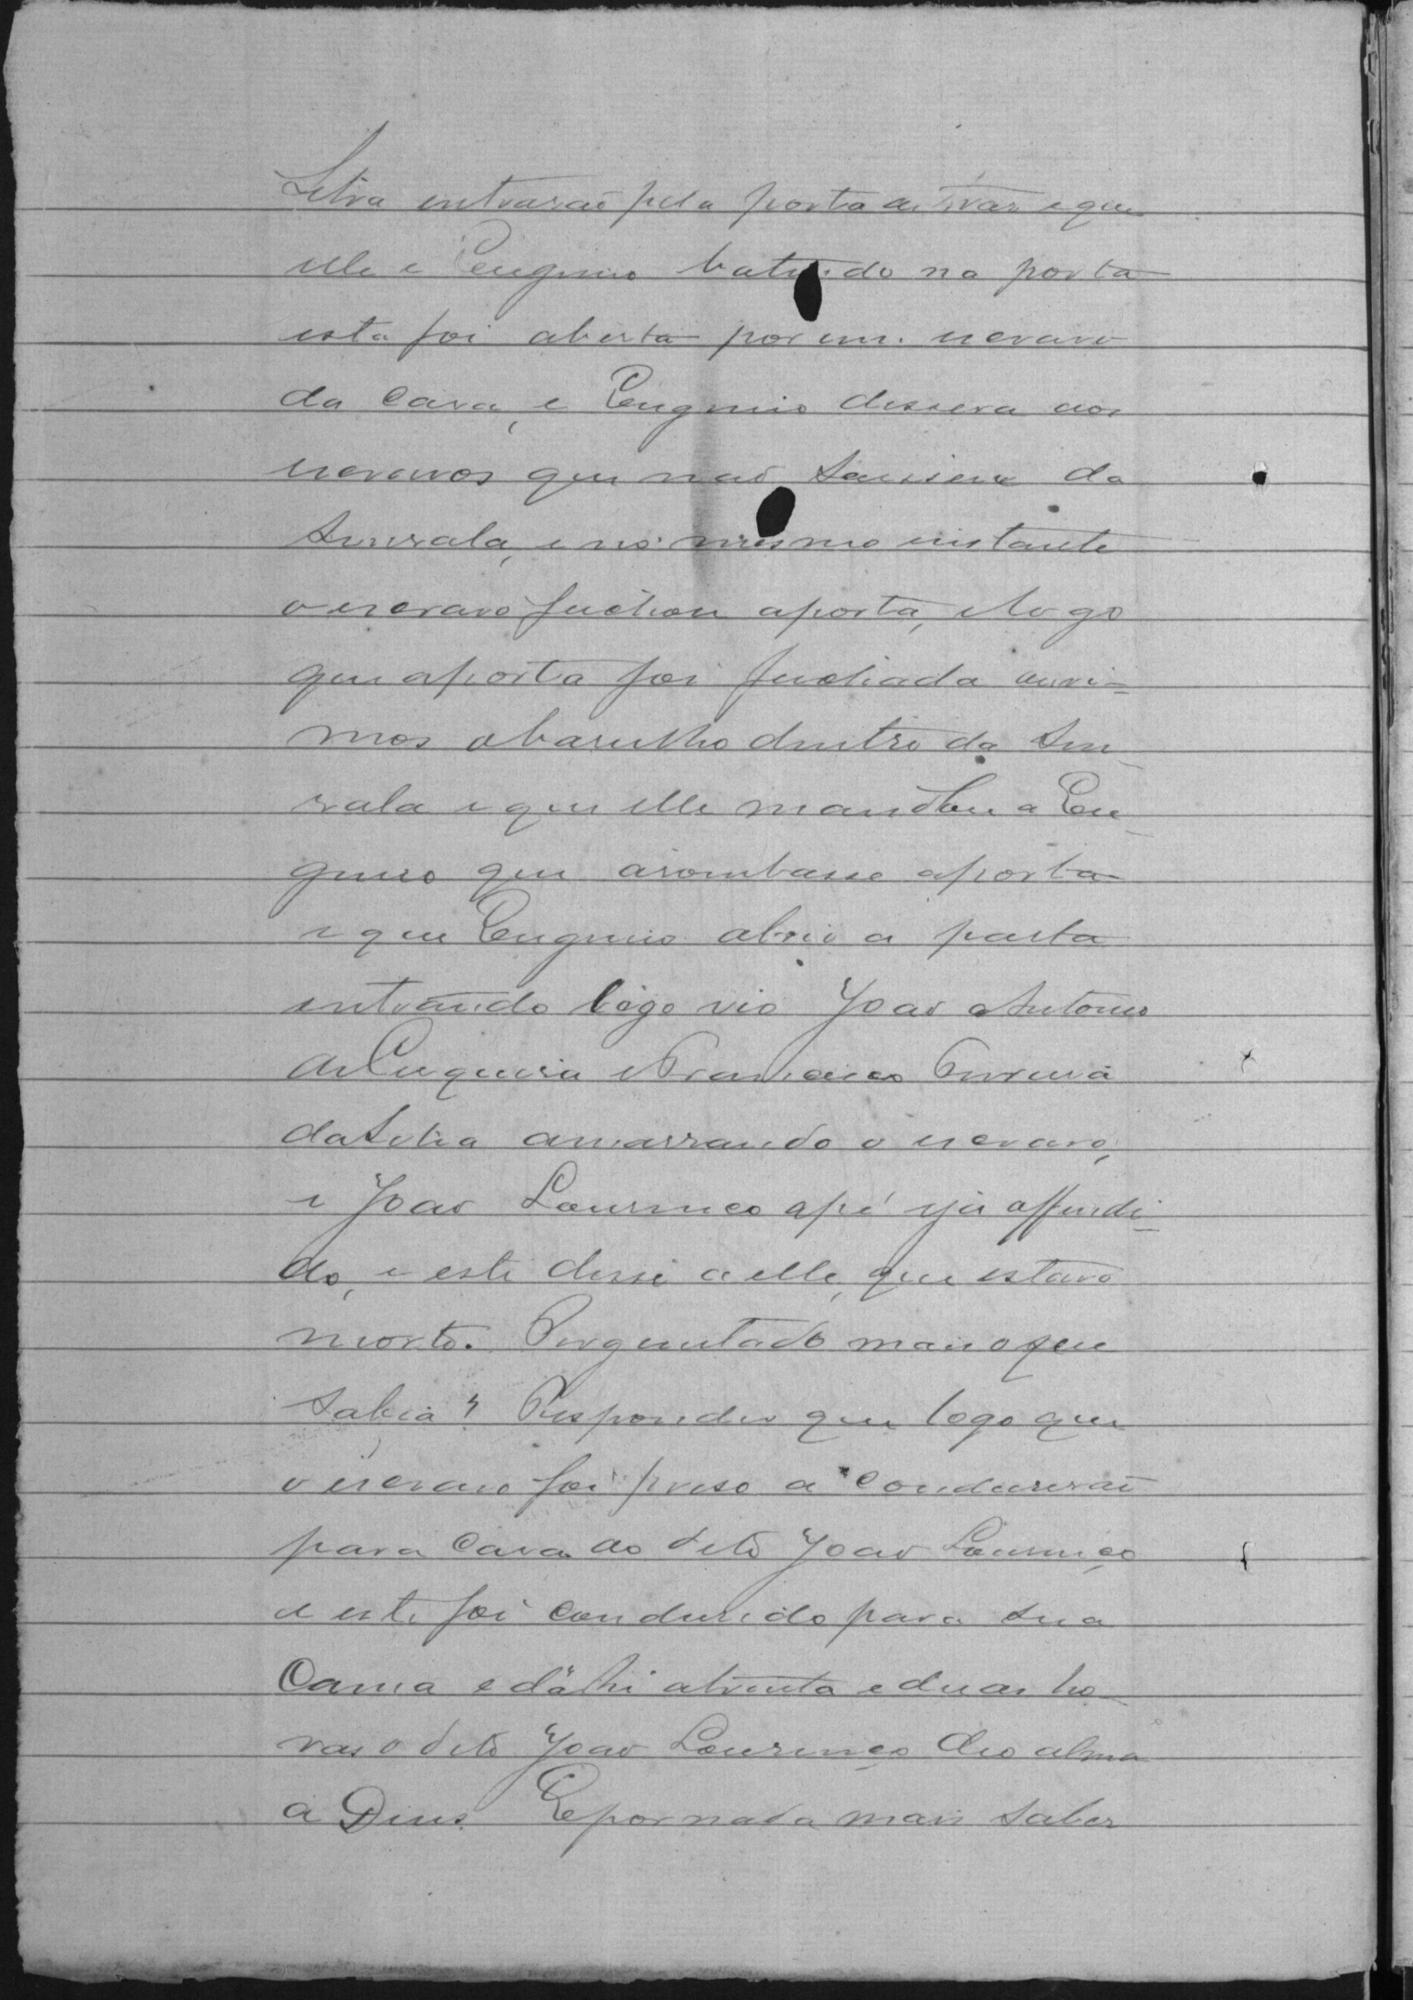 Silva entrarão pela porta de tras e que
elle e Eugenio batendo na porta
esta foi aberta por um escravo
da casa, e Eugenio dissera aos
escravos que não sauisem da
Sensala, e no mesmo instante
o escravo fuchou aporta, elogo
que aporta foi fuchada ouvi-
mos obarulho dentro da Sen-
zala e que elle mandou a Eu-
genio que arombasse aporta
e que Eugenio abrio a porta
entrando logo vio Joao Antonio
de Siqueira e Francisco Pereira
da Silva amarrando o escravo,
e Joao Lourenco apé eja offendi-
do, e este disse a elle, que estava
morto. Perguntado mais oque
sabia? Respondeo que logo que
o escravo foi preso a condusirão
para casa do dito Joao Lourenço
e este foi condusido para sua
Cama e dahi atrinta e duas ho-
ras o dito Joao Lourenço deo alma
a Deus. E por nada mais saber